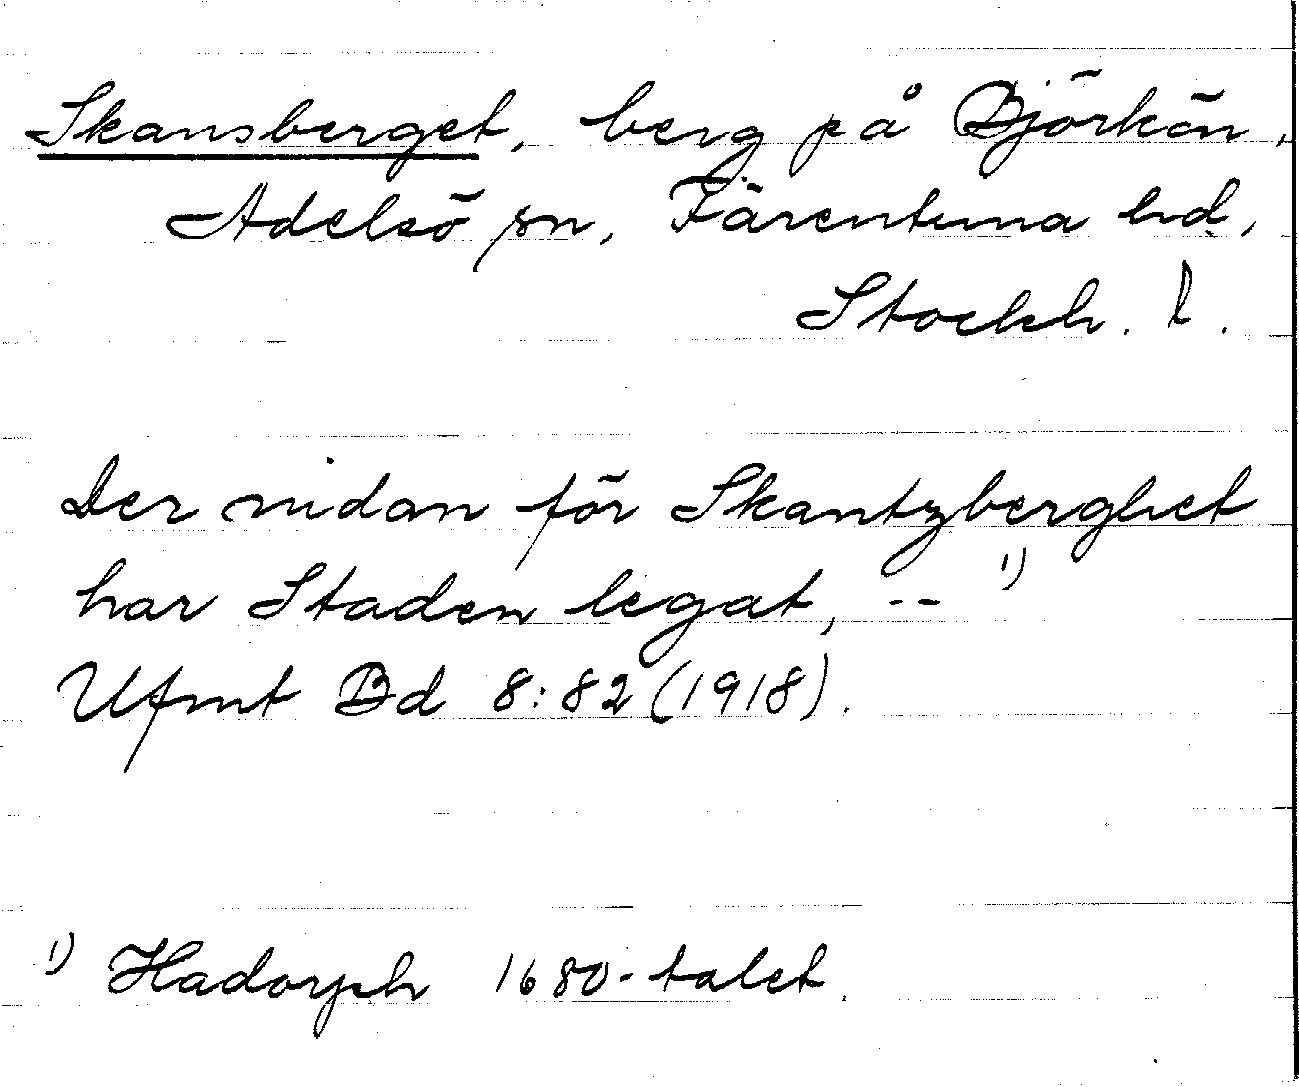 Skansberget, berg på Björkön,
Adelsö sn, Färentuna hd,
Stockh. l.
Der nidan för Skantzberghet
har Staden legat, -- 1)
Ufmt Bd 8:82 (1918).
1) Hadorph 1680-talet.